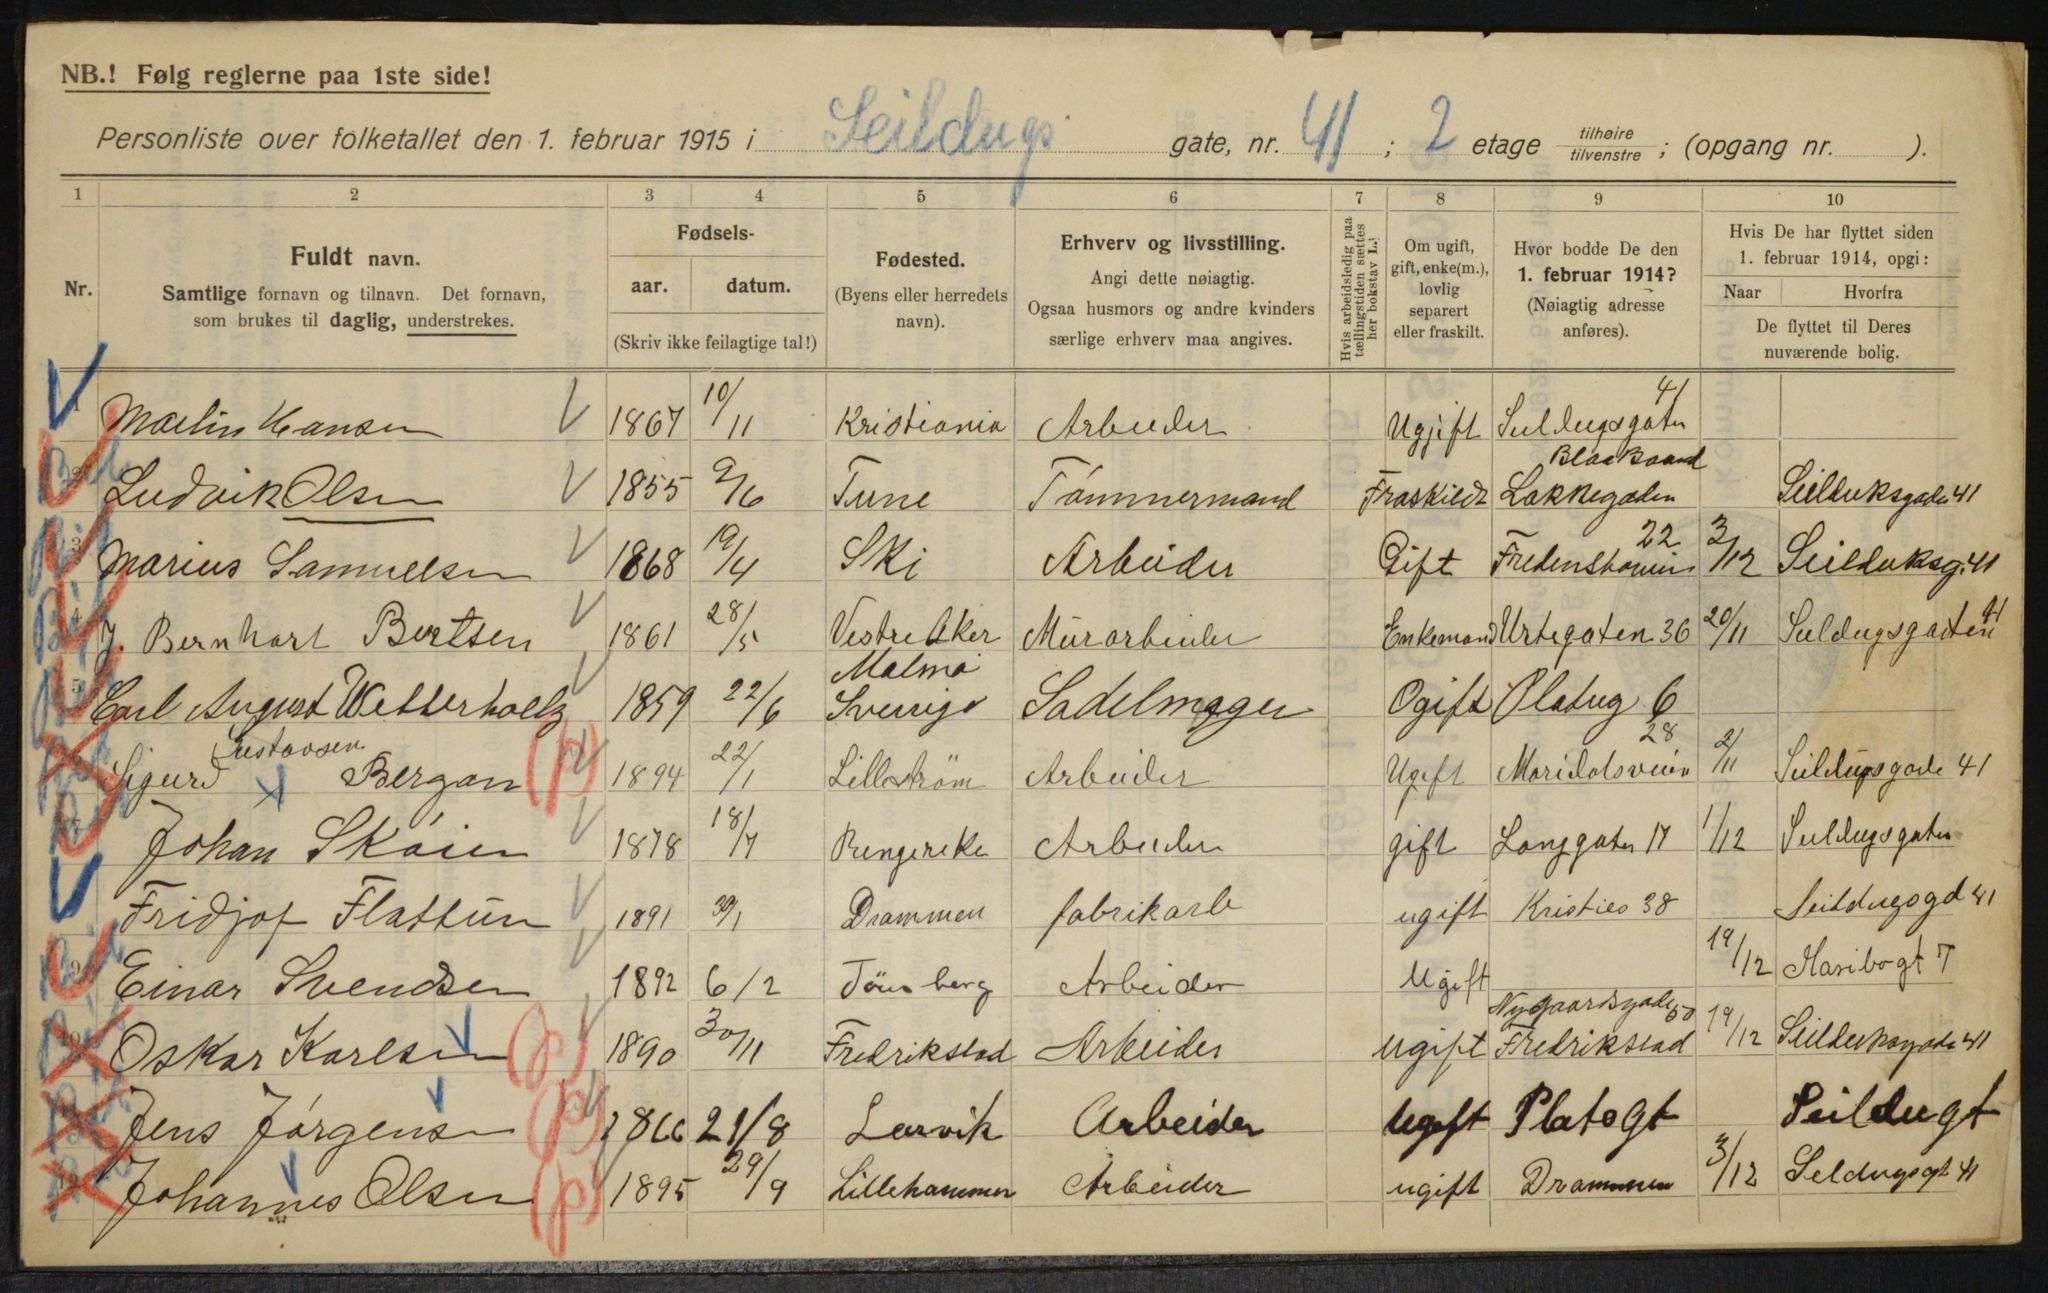 NB.! Følg reglerne paa 1ste side!
Personliste over folketallet den 1. februar 1915 i Seildugs gate, nr. 41 ; 2 etage tilhøire / tilvenstre ; (opgang nr. ).
1 2 3 4 5 6 7 8 9 10
Nr.
Fuldt navn.
Samtlige fornavn og tilnavn. Det fornavn,
som brukes til daglig, understrekes.
Fødsels-
aar. datum.
(Skriv ikke feilagtige tal!)
Fødested.
(Byens eller herredets
navn).
Erhverv og livsstilling.
Angi dette nøiagtig.
Ogsaa husmors og andre kvinders
særlige erhverv maa angives.
Hvis arbeidsledig paa
tællingstiden sættes
her bokstav L.!
Om ugift,
gift, enke(m.),
lovlig
separert
eller fraskilt.
Hvor bodde De den
1. februar 1914?
(Nøiagtig adresse
anføres).
Hvis De har flyttet siden
1. februar 1914, opgi:
Naar Hvorfra
De flyttet til Deres
nuværende bolig.
1 Martin Hansen 1867 10/11 Kristiania Arbeider Ugjift Seildugsgaten 41
2 Ludvik Olsen 1855 9/6 Tune Tömmermand Fraskildt Blaa Baand Lakkegaden Seilduksgade 41
3 Marius Samuelsen 1868 19/4 Ski Arbeider Gift 22 3/12 Seilduksg. 41
4 J. Bernhart Bertsen 1861 28/5 Vestre Aker Murarbeider Enkemand Urtegaten 36 20/11 Seildugsgaten 41
5 Carl August Wetterholz 1859 22/6 Malmö Sverrige Sadelmager Ogift Platug 6
Sigurd Gustavsen Bergan (p) 1894 22/1 Lillestrøm Arbeider Ugift Maridalsveien 28 2/11 Seildugsgade 41
7 Johan Skøien 1878 18/7 Ringerike Arbeider gift Langgaten 17 1/12 Seildugsgaten
Fridjof Flattun 1891 30/1 Drammen fabrikarb ugift Kristies 38 Seildugsgd 41
9 Einar Svendsen 1892 6/2 Tönsberg Arbeider Ugift 19/12 Maribogt 7
Oskar Karlsen (p) 1890 30/11 Fredrikstad Arbeider ugift Nygaardsgade 50 Fredrikstad 19/12 Seilduksgade 41
Jens Jørgensen (p) 1866 21/8 Larvik Arbeider Ugift Platogt Seildugt
12 Johannes Olsen (p) 1895 29/9 Lillehammer Arbeider ugift Drammen 3/12 Seldugsgt 41